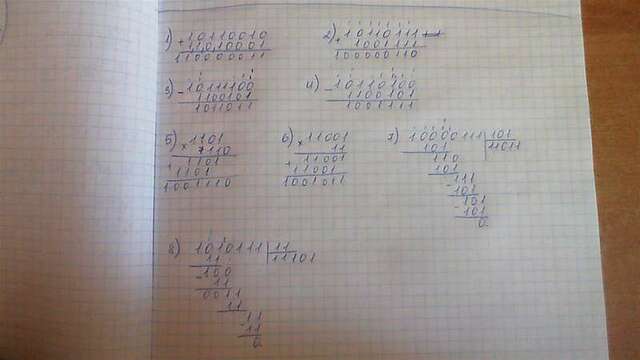 1) + 10110010
11010001
110000011
2) + 1011011
1001111
100000110
3) - 10111100
1100101
1011011
4) - 10110100
1100101
1001111
5) × 1101
110
+ 1101
1101
1001110
6) × 11001
11
+ 11001
11001
1001011
7) 10000111 101
101 11011
110
101
111
- 101
101
- 101
0
8) 1010111 11
11 11101
- 100
11
0011
11
11
- 11
0